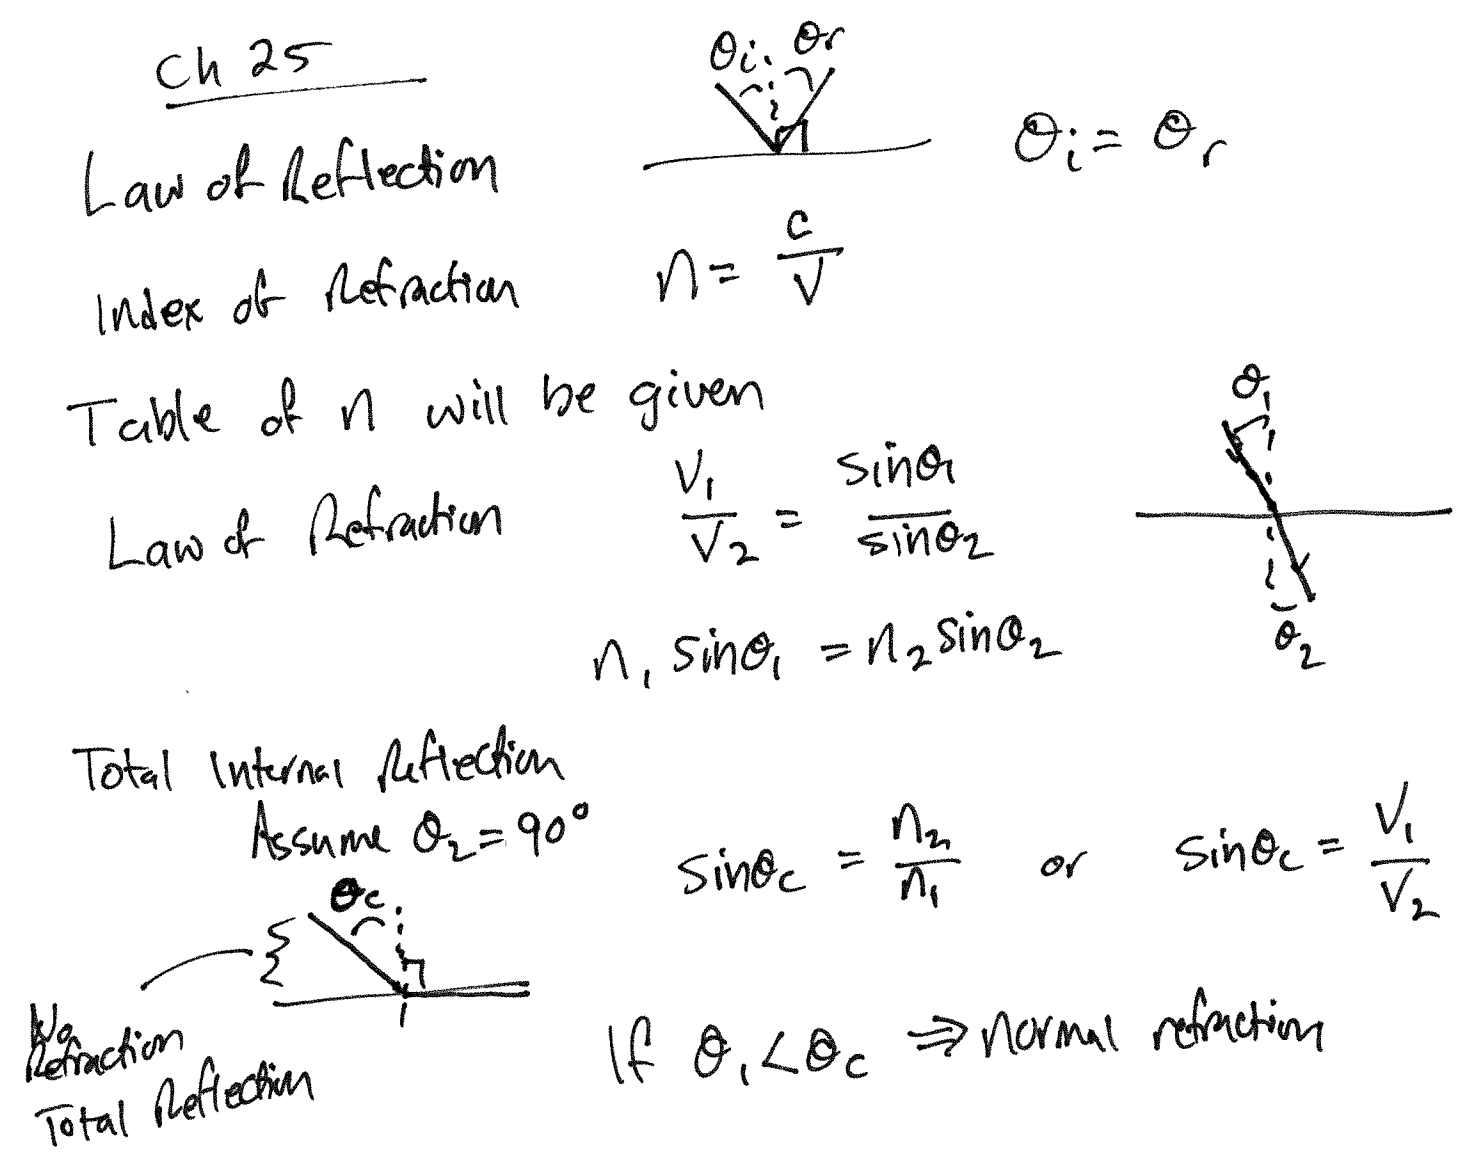 Ch 25
θi θr
Law of Reflection
θi = θr
Index of Refraction n = c/v
Table of n will be given
Law of Refraction v₁/v₂ = sinθ₁/sinθ₂
θ₁
θ₂
n₁ sinθ₁ = n₂ sinθ₂
Total Internal Reflection
Assume θ₂ = 90°
sinθc = n₂/n₁ or sinθc = v₁/v₂
θc
No
Refraction
Total Reflection
If θ₁ < θc ⇒ normal refraction